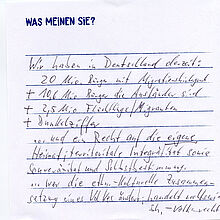 WAS MEINEN SIE?
Wir haben in Deutschland derzeit:
20 Mio. Bürger mit Migrationshintergrund
+ 10,6 Mio. Bürger die Ausländer sind
+ 2,5 Mio. Flüchtlinge/Migranten
+ Dunkelziffer
... und ein Recht auf die eigene
Heimat, territoriale Integrität sowie
Souveränität und Selbstbestimmung.
... wer die ethn.-kulturelle Zusammen-
setzung eines Volkes ändert, handelt
-Völkerrecht